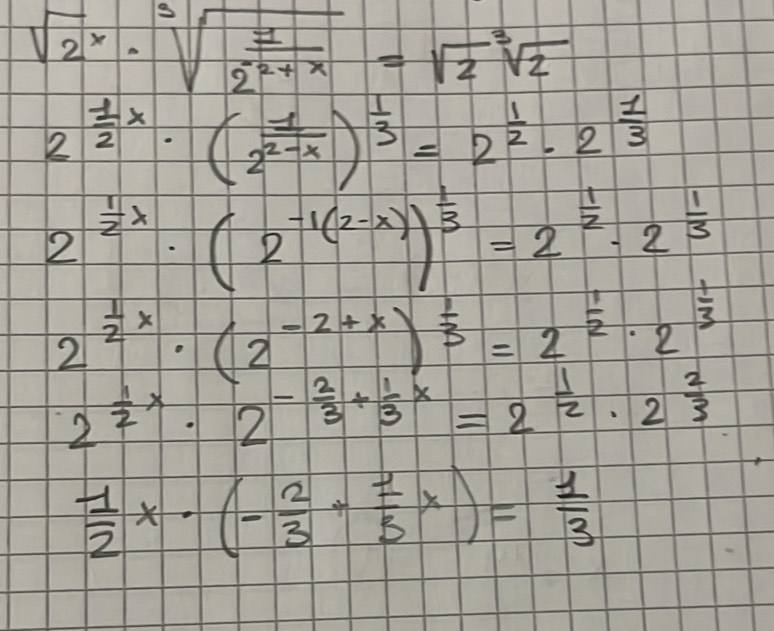 √2^x · ∛(1/2^(-2+x)) = √2 ∛2
2^(1/2 x) · (1/2^(2-x))^(1/3) = 2^(1/2) · 2^(1/3)
2^(1/2 x) · (2^(-1(2-x)))^(1/3) = 2^(1/2) · 2^(1/3)
2^(1/2 x) · (2^(-2+x))^(1/3) = 2^(1/2) · 2^(1/3)
2^(1/2 x) · 2^(-2/3 + 1/3 x) = 2^(1/2) · 2^(2/3)
1/2 x · (-2/3 + 1/3 x) = 1/3